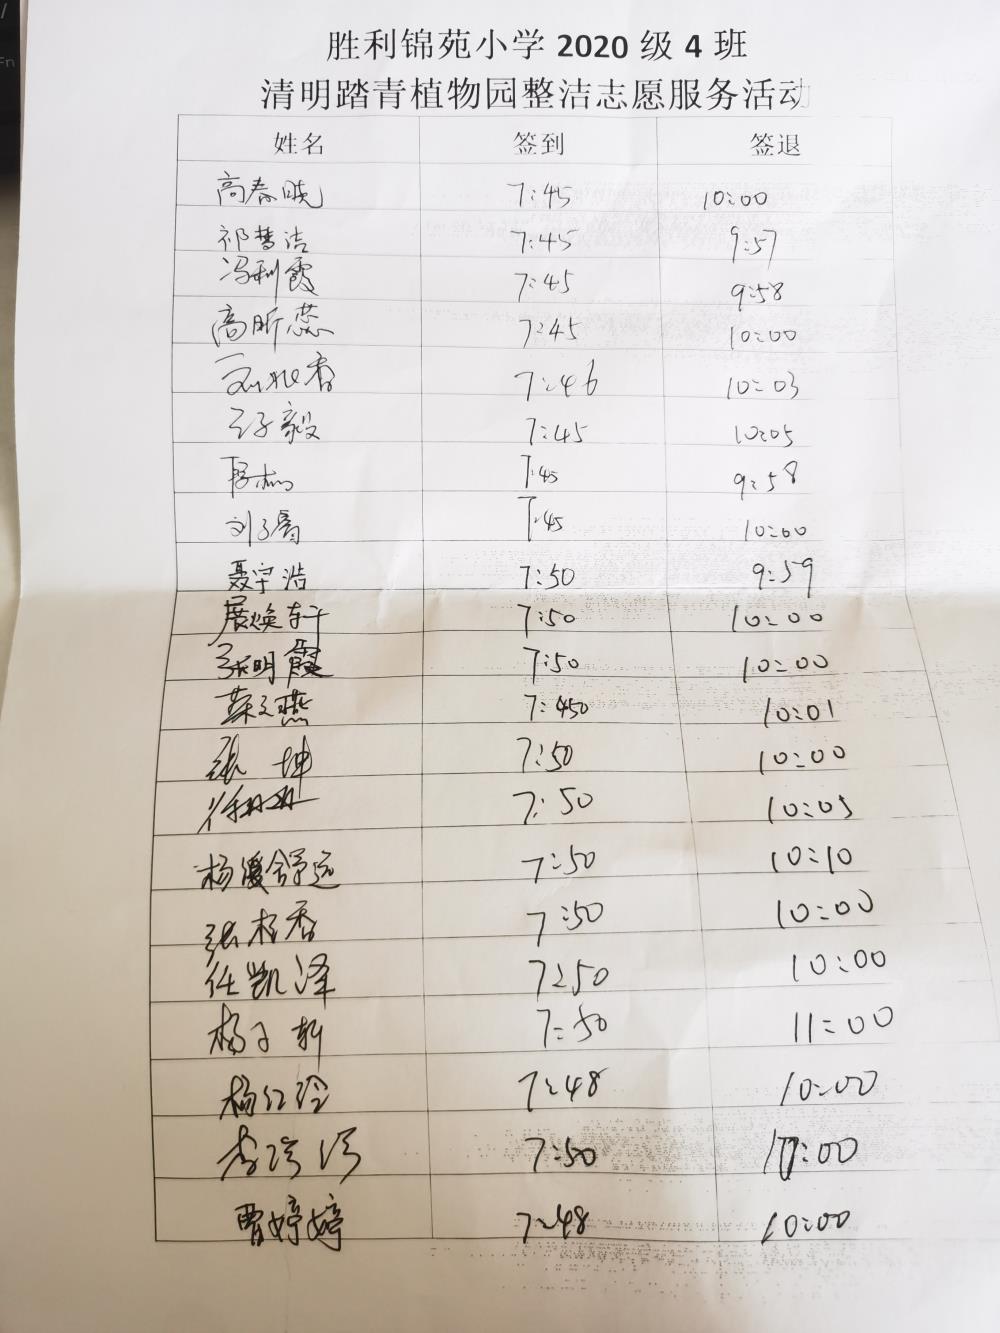 胜利锦苑小学 2020 级 4 班
清明踏青植物园整洁志愿服务活动
姓名 签到 签退
高春晓 7:45 10:00
祁慧洁 7:45 9:57
冯利霞 7:45 9:58
高昕蕊 7:45 10:00
7:46 10:03
王子毅 7:45 10:05
7:45 9:58
7:45 10:00
聂宇浩 7:50 9:59
展焕轩 7:50 10:00
张明霞 7:50 10:00
燕 7:450 10:01
张坤 7:50 10:00
7:50 10:05
杨 舒远 7:50 10:10
张桂香 7:50 10:00
任凯泽 7:50 10:00
杨子轩 7:50 11:00
杨红玲 7:48 10:00
李 7:50 :00
曹婷婷 7:48 10:00